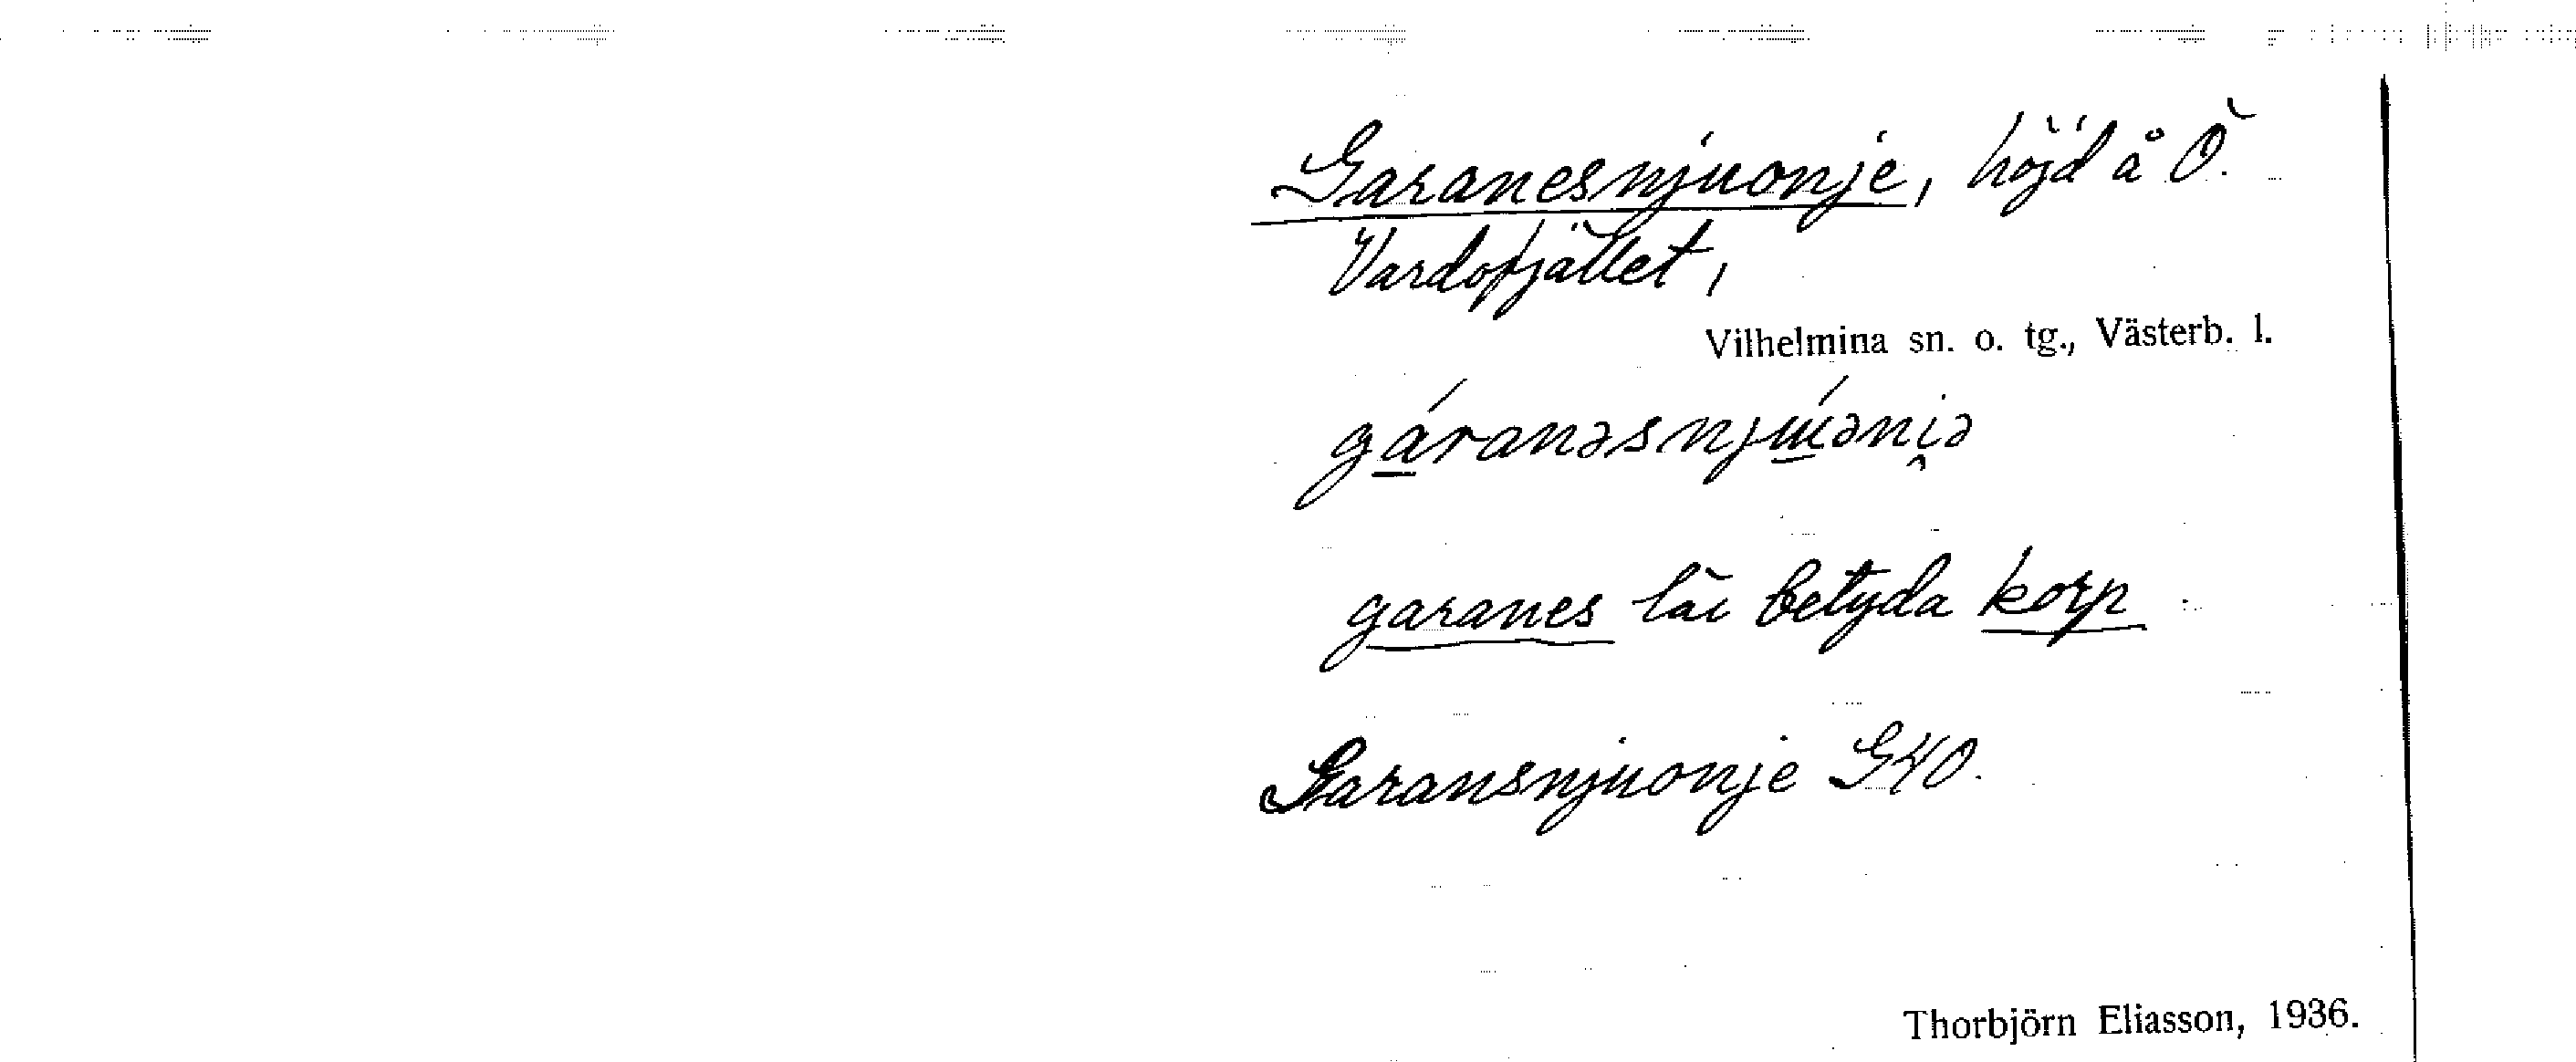 Garanesnjuonje, höjd å Ö.
Vardofjället,
Vilhelmina sn. o. tg., Västerb. l.
gáranəsnjɯ́əni̯ə
garanes lär betyda korp
Garansnjuonje GKO.
Thorbjörn Eliasson, 1936.